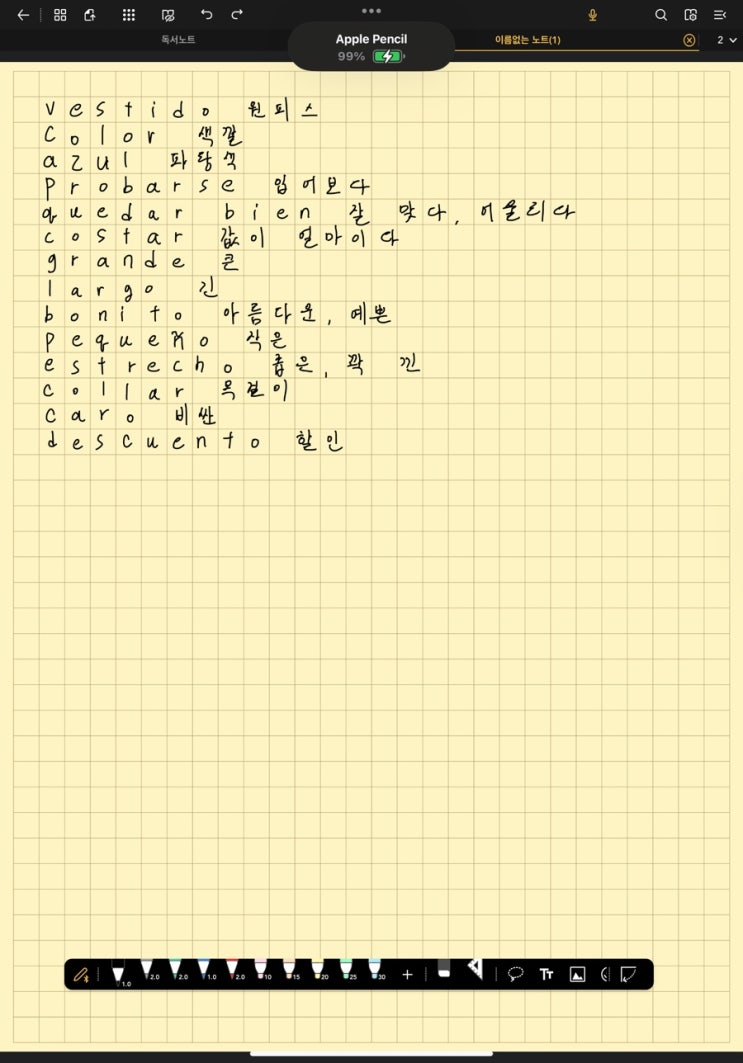 Apple Pencil
99%
독서노트
이름없는 노트(1)
2
vestido 원피스
color 색깔
azul 파랑색
probarse 입어보다
quedar bien 잘 맞다, 어울리다
costar 값이 얼마이다
grande 큰
largo 긴
bonito 아름다운, 예쁜
pequeño 작은
estrecho 좁은, 꽉 낀
collar 목걸이
caro 비싼
descuento 할인
1.0 2.0 2.0 1.0 2.0 10 15 20 25 30 Tт